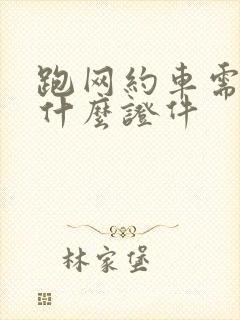 跑网約車需
什麼證件
林家堡